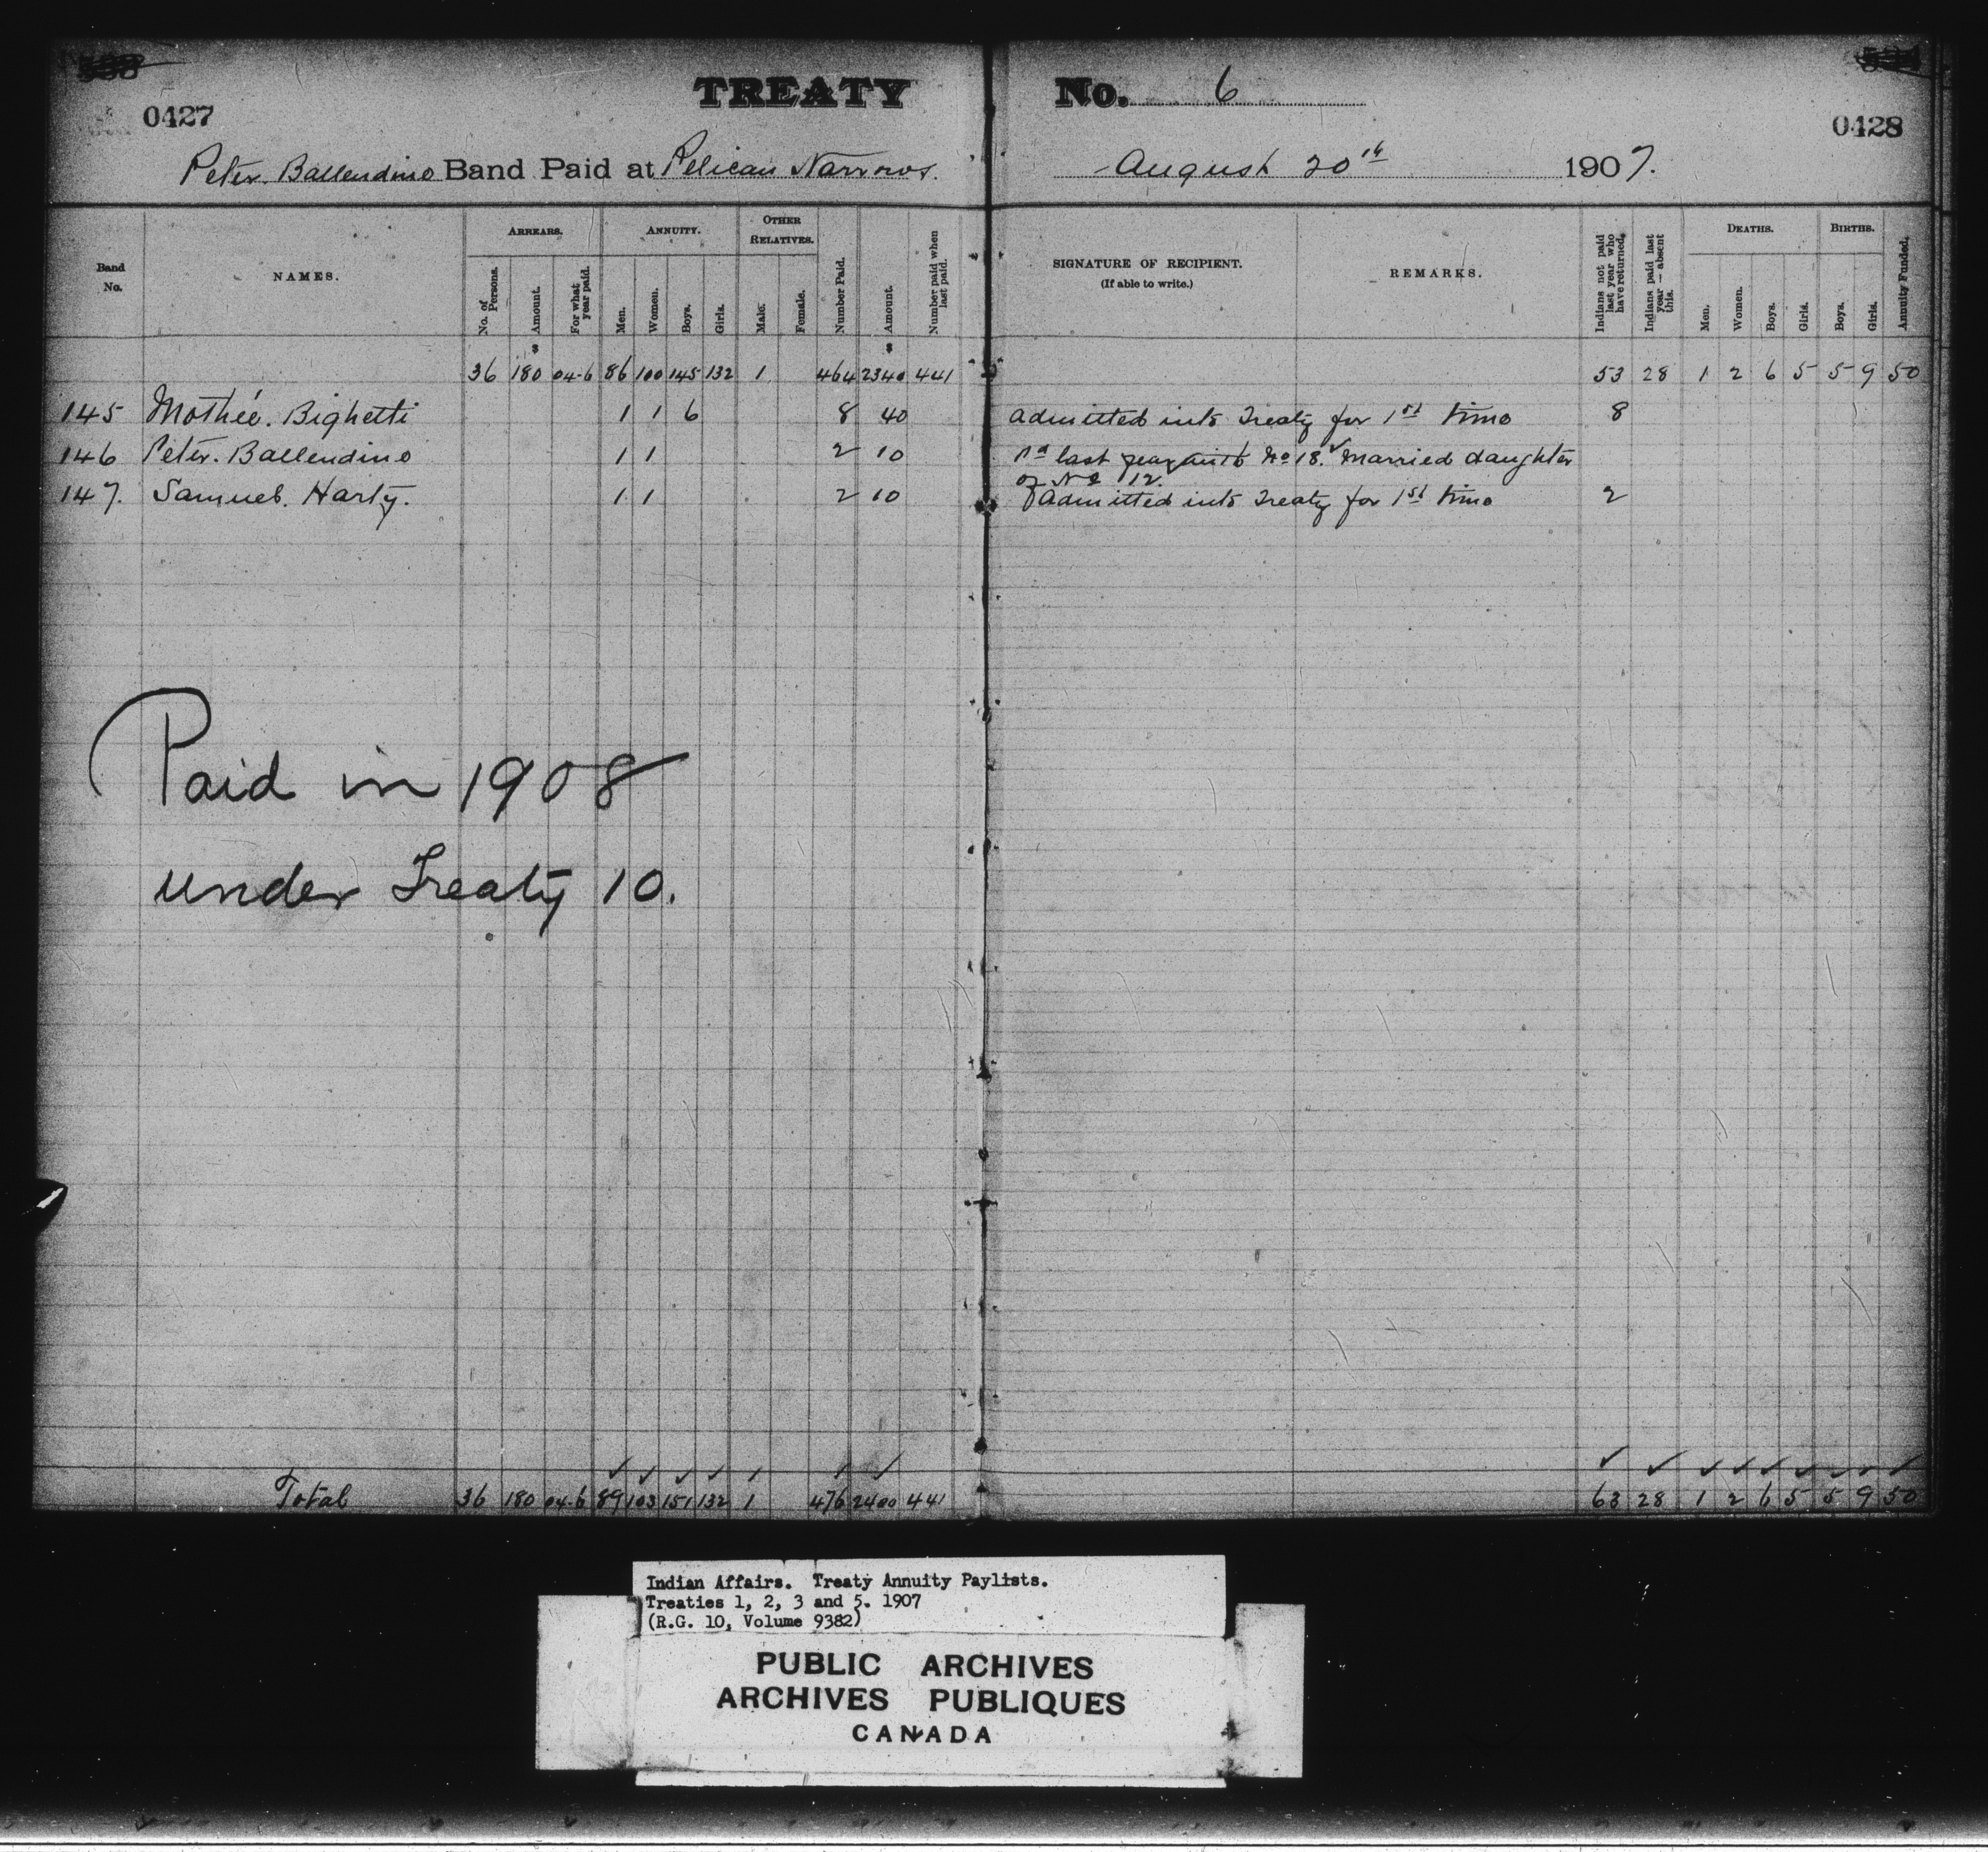 TREATY No. 6
0427 0428
Peter Ballendine Band Paid at Pelican Narrows. August 20th 1907.
Band No. NAMES. ARREARS. ANNUITY. OTHER RELATIVES. Number Paid. Amount. Number paid when last paid. SIGNATURE OF RECIPIENT. (If able to write.) REMARKS. Indians not paid last year who have returned. Indians paid last year — absent this. DEATHS. BIRTHS. Annuity Funded.
No. of Persons. Amount. For what year paid. Men. Women. Boys. Girls. Male. Female. Men. Women. Boys. Girls. Boys. Girls.
$ $
36 180 04-6 86 100 145 132 1 464 2340 441 53 28 1 2 6 5 5 9 50
145 Mothée. Bighetti 1 1 6 8 40 admitted into Treaty for 1st time 8
146 Peter. Ballendine 1 1 2 10 Pd last year with No 18. Married daughter
of No 112.
147. Samuel. Harty. 1 1 2 10 Admitted into Treaty for 1st time 2
Paid in 1908
under Treaty 10.
Total 36 180 04-6 89 103 151 132 1 476 2400 441 63 28 1 2 6 5 5 9 50
Indian Affairs. Treaty Annuity Paylists.
Treaties 1, 2, 3 and 5. 1907
(R.G. 10, Volume 9382)
PUBLIC ARCHIVES
ARCHIVES PUBLIQUES
CANADA